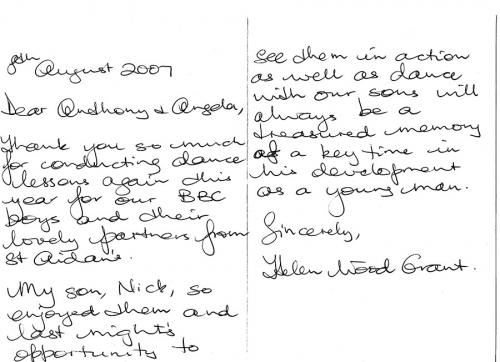 8th August 2007
Dear Anthony & Angela,
Thank you so much
for conducting dance
lessons again this
year for our BBC
boys and their
lovely partners from
St Aidan's.
My son, Nick, so
enjoyed them and
last night's
opportunity to
see them in action
as well as dance
with our sons will
always be a
treasured memory
of a key time in
his development
as a young man.
Sincerely,
Helen Wood Grant.